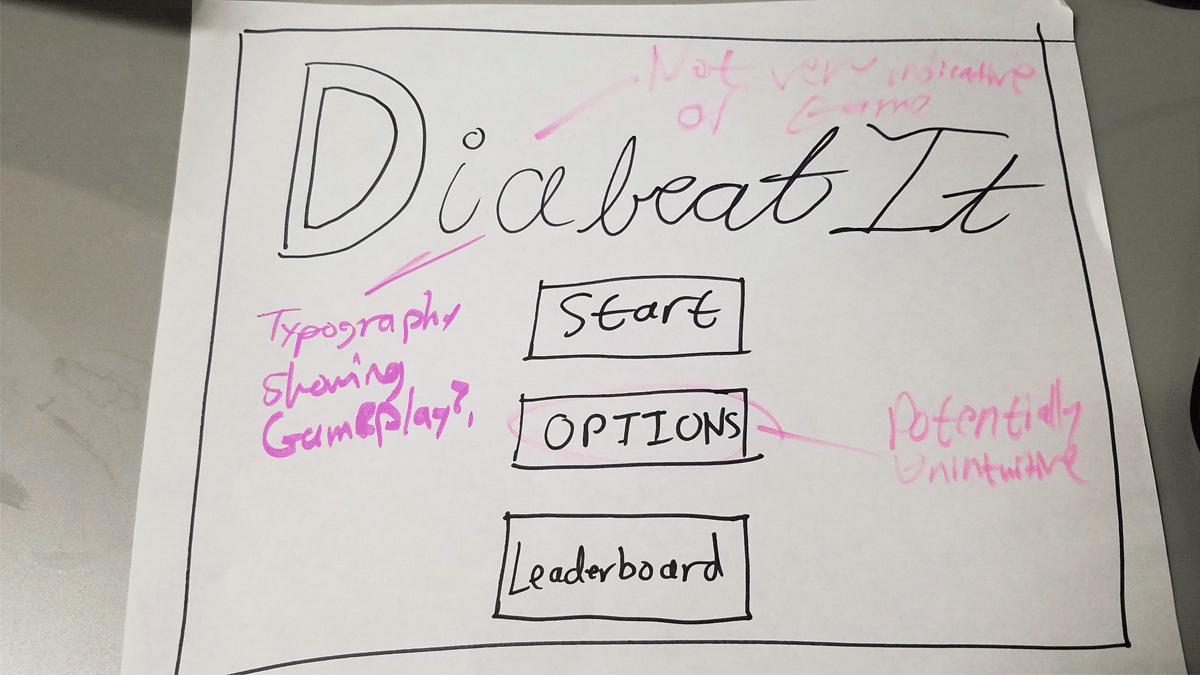 Not very indicative
of Game
Diabeat It
Typography
showing
Gameplay?
Start
OPTIONS
Potentially
Unintuitive
Leaderboard